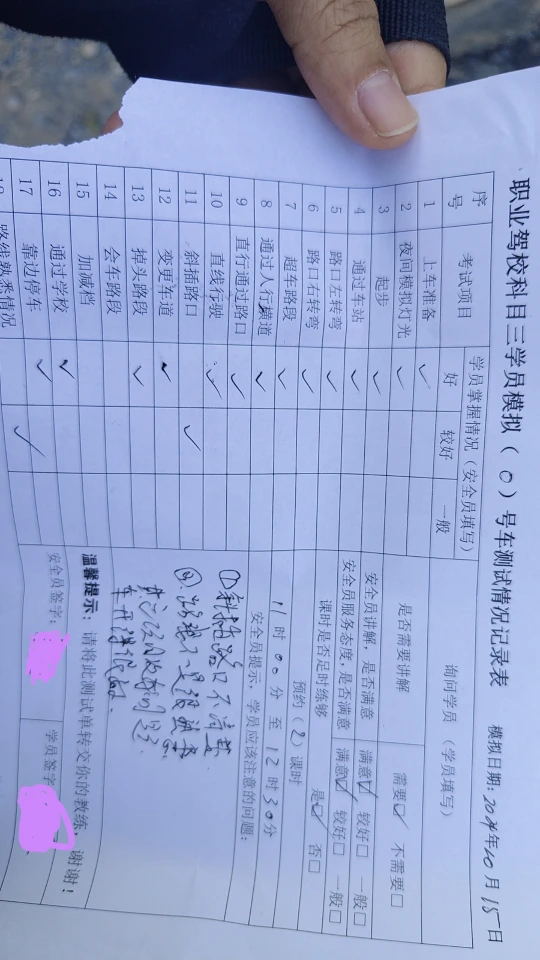 职业驾校科目三学员模拟（0）号车测试情况记录表
模拟日期：2024年10月15日
序号 考试项目 学员掌握情况（安全员填写） 询问学员（学员填写）
好 较好 一般
1 上车准备 ✓
2 夜间模拟灯光 ✓
3 起步 ✓
4 通过车站 ✓
5 路口左转弯 ✓
6 路口右转弯 ✓
7 超车路段 ✓
8 通过人行横道 ✓
9 直行通过路口 ✓
10 直线行驶 ✓
11 斜插路口 ✓
12 变更车道 ✓
13 掉头路段 ✓
14 会车路段
15 加减档
16 通过学校 ✓
17 靠边停车 ✓
18 路线熟悉情况 ✓
是否需要讲解 需要☑ 不需要□
安全员讲解，是否满意 满意☑ 较好□ 一般□
安全员服务态度，是否满意 满意☑ 较好□ 一般□
课时是否足时练够 是☑ 否□
预约（2）课时
11时00分至12时30分
安全员提示，学员应该注意的问题：
①斜插路口不清楚
车开得很好.
温馨提示：请将此测试单转交你的教练，谢谢！
安全员签字：
学员签字